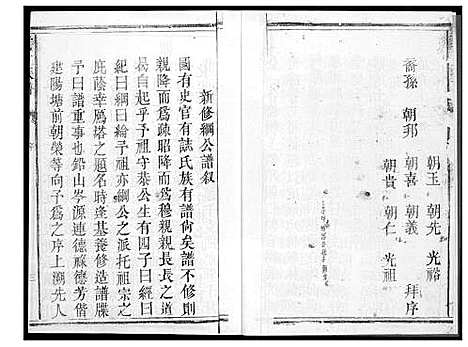 裔孫 朝邦
朝玉 朝先 光裕
朝喜 朝義 拜序
朝貴 朝仁 光祖
新修綱公譜叙
國有史官有誌氏族有譜尙矣譜不修則
親降而爲疏昭降而爲穆親親長長之道
曷自起乎予祖守恭公生有四子曰經曰
紀曰綱曰綸予祖亦綱公之派托祖宗之
庇蔭幸鴈塔之題名時逢基養修造譜牒
予曰譜重事也鉛山岑源連德禄德芳偕
建陽塘前朝榮等向予爲之序上溯先人